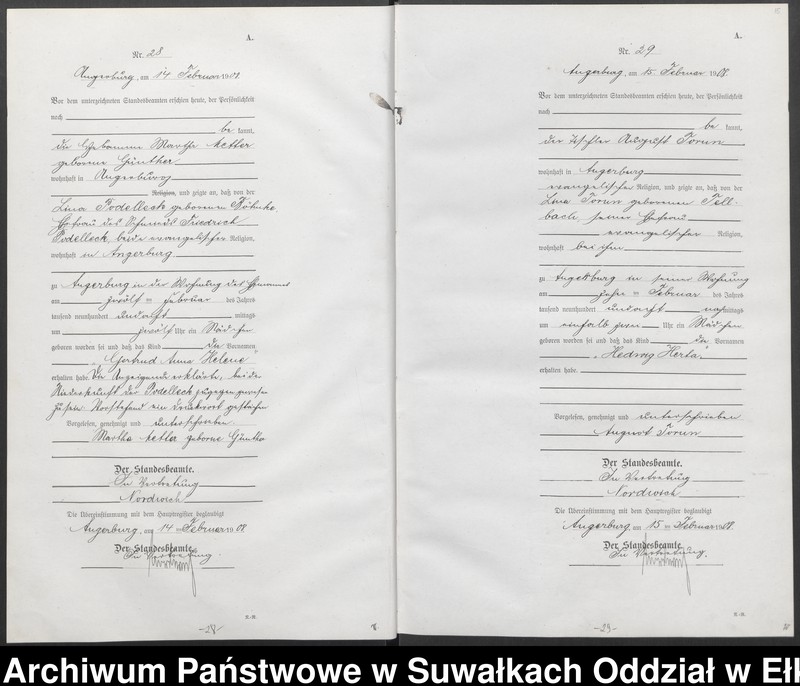 A.
Nr. 28
Angerburg, am 14 Februar 1908.
Vor dem unterzeichneten Standesbeamten erschien heute, der Persönlichkeit
nach
be kannt,
die Hebamme Martha Metler
geborene Günther
wohnhaft in Angerburg
Religion, und zeigte an, daß von der
Lina Podelleck geborenen Döhnke
Ehefrau des Schmieds Friedrich
Podelleck, beide evangelischer Religion,
wohnhaft in Angerburg
zu Angerburg in der Wohnung des Ehemannes
am zwölf ten Februar des Jahres
tausend neunhundert und acht mittags
um zwölf Uhr ein Mädchen
geboren worden sei und daß das Kind die Vornamen
„Gertrud Anna Helene“
erhalten habe. Die Anzeigende erklärte, bei der
Niederkunft der Podelleck zugegen gewesen
zu sein. Vorstehend ein Druckwort gestrichen
Vorgelesen, genehmigt und unterschrieben
Martha Metler geborne Günther
Der Standesbeamte.
In Vertretung
Nordwich
Die Übereinstimmung mit dem Hauptregister beglaubigt
Angerburg, am 14 ten Februar 1908
Der Standesbeamte.
In Vertretung.
-28-
A.
Nr. 29
Angerburg, am 15. Februar 1908.
Vor dem unterzeichneten Standesbeamten erschien heute, der Persönlichkeit
nach
be kannt,
der Tischler August Torun
wohnhaft in Angerburg
evangelische Religion, und zeigte an, daß von der
Lina Torun geborenen Fell-
bach, seiner Ehefrau
evangelischer Religion,
wohnhaft bei ihm
zu Angerburg in seiner Wohnung
am zehn ten Februar des Jahres
tausend neunhundert und acht nachmittags
um einhalb zwei Uhr ein Mädchen
geboren worden sei und daß das Kind die Vornamen
„Hedwig Herta“
erhalten habe.
Vorgelesen, genehmigt und unterschrieben
August Torun
Der Standesbeamte.
In Vertretung
Nordwich
Die Übereinstimmung mit dem Hauptregister beglaubigt
Angerburg, am 15 ten Februar 1908.
Der Standesbeamte.
In Vertretung.
-29-
Archiwum Państwowe w Suwałkach Oddział w Ełk